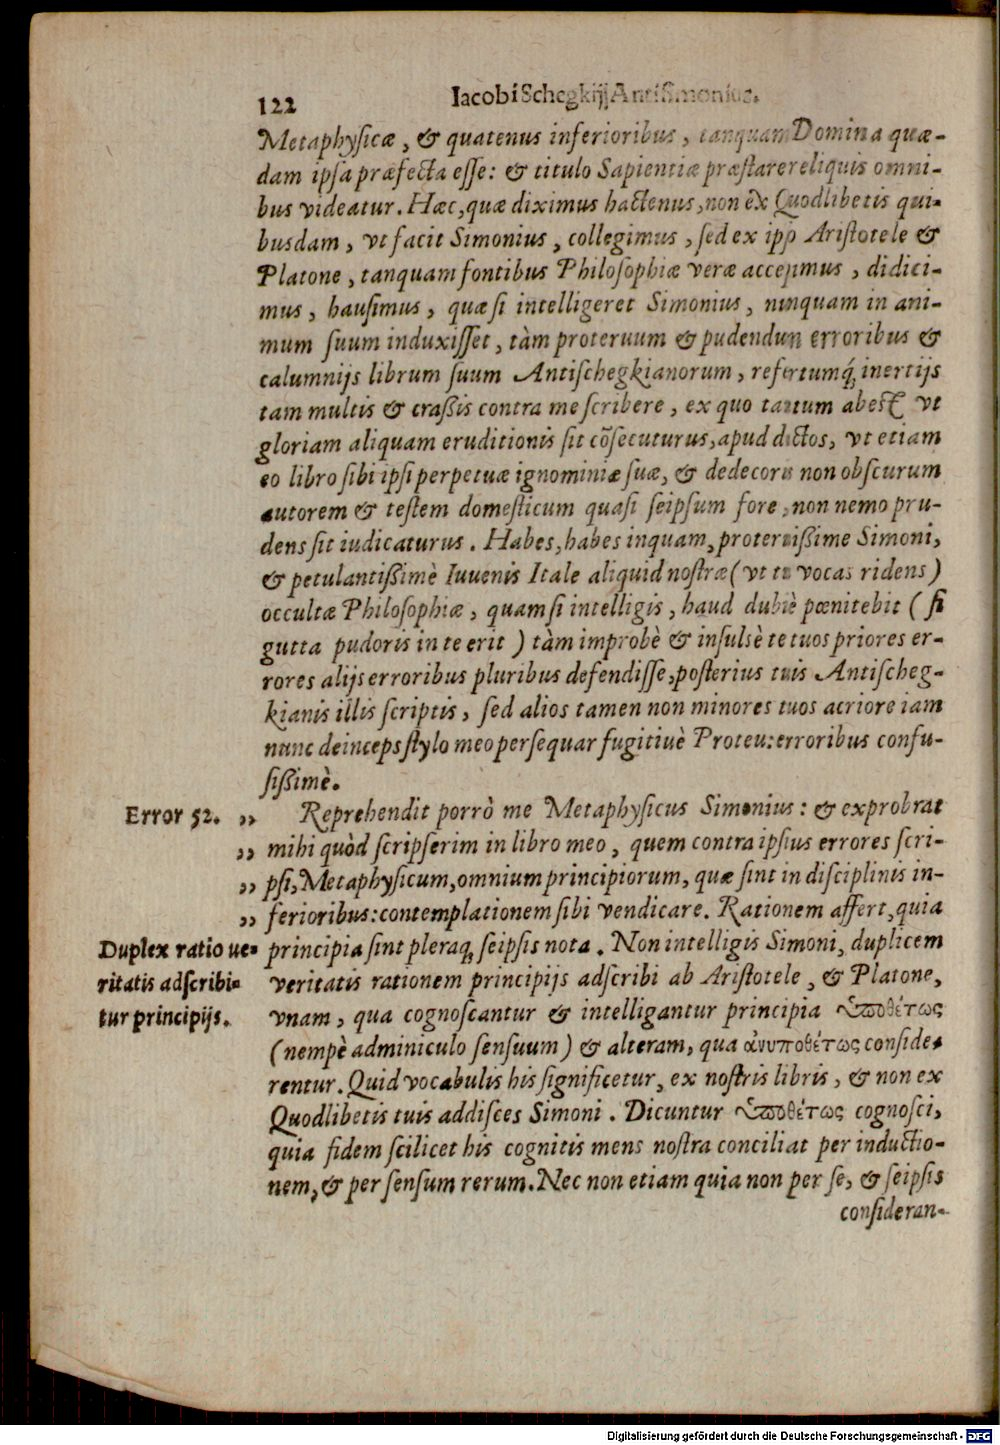 122 Iacobi Schegkij AntiSimonius.
Metaphysicæ, & quatenus inferioribus, tanquam Domina quæ-
dam ipsa præfecta esse: & titulo Sapientiæ præstare reliquis omni-
bus videatur. Hæc, quæ diximus hactenus, non ex Quodlibetis qui-
busdam, vt facit Simonius, collegimus, sed ex ipso Aristotele &
Platone, tanquam fontibus Philosophiæ veræ accepimus, didici-
mus, hausimus, quæ si intelligeret Simonius, nunquam in ani-
mum suum induxisset, tàm proteruum & pudendum erroribus &
calumnijs librum suum Antischegkianorum, refertumq́; inertijs
tam multis & craßis contra me scribere, ex quo tantum abest vt
gloriam aliquam eruditionis sit cõsecuturus, apud doctos, vt etiam
eo libro sibi ipsi perpetuæ ignominiæ suæ, & dedecoris non obscurum
autorem & testem domesticum quasi seipsum fore, non nemo pru-
dens sit iudicaturus. Habes, habes inquam, proteruißime Simoni,
& petulantißimè Iuuenis Itale aliquid nostræ (vt tu vocas ridens)
occultæ Philosophiæ, quam si intelligis, haud dubiè pœnitebit (si
gutta pudoris in te erit) tàm improbè & insulsè te tuos priores er-
rores alijs erroribus pluribus defendisse, posterius tuis Antischeg-
kianis illis scriptis, sed alios tamen non minores tuos acriore iam
nunc deinceps stylo meo persequar fugitiuè Proteu: erroribus confu-
sißimè.
Error 52. ,, Reprehendit porrò me Metaphysicus Simonius: & exprobrat
,, mihi quòd scripserim in libro meo, quem contra ipsius errores scri-
,, psi, Metaphysicum, omnium principiorum, quæ sint in disciplinis in-
,, ferioribus: contemplationem sibi vendicare. Rationem affert, quia
Duplex ratio ue- principia sint pleraq; seipsis nota. Non intelligis Simoni, duplicem
ritatis adscribi- veritatis rationem principijs adscribi ab Aristotele, & Platone,
tur principijs. vnam, qua cognoscantur & intelligantur principia ὑποθέτως
(nempè adminiculo sensuum) & alteram, qua ἀνυποθέτως conside-
rentur. Quid vocabulis his significetur, ex nostris libris, & non ex
Quodlibetis tuis addisces Simoni. Dicuntur ὑποθέτως cognosci,
quia fidem scilicet his cognitis mens nostra conciliat per inductio-
nem, & per sensum rerum. Nec non etiam quia non per se, & seipsis
consideran-
Digitalisierung gefördert durch die Deutsche Forschungsgemeinschaft - DFG